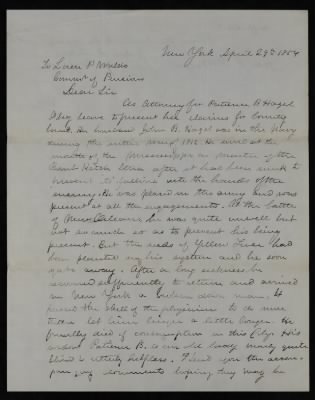 New York April 29th 1854
To Loren P Waldo
Commr of Pensions
Dear Sir
As Attorney for Patience B Hagel
I beg leave to present her claims for bounty
land. Her husband John B. Hagel was in the Navy
during the entire war of 1812. He was at the
mouth of the Mississippi as master of the
Bomb Ketch Etna after it had been sunk to
prevent its falling into the hands of the
enemy. He was placed in the army and was
present at all the engagements. At the battle
of New Orleans he was quite unwell but
not so much so as to prevent his being
present. But the seeds of Yellow Fever had
been planted in his system and he soon
gave away. After a long sickness he
recovered sufficiently to return and arrived
in New York a broken down man. It
passed the skill of the physicians to do more
than let him linger a little longer. He
finally died of consumption in this City. His
widow Patience B. is an old lady nearly quite
blind & utterly helpless. I send you the accom-
panying documents hoping they may be